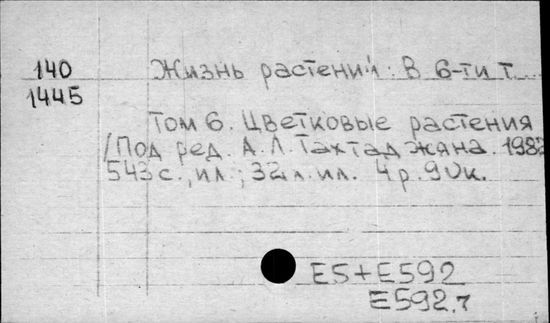 140 Жизнь растений. В 6-ти т.
1445
Том 6. Цветковые растения
/Под ред. А.Л. Тахтаджяна. 1982
543 с., ил.; 32 л. ил. 4 р. 90 к.
Е5+Е592
Е592.7